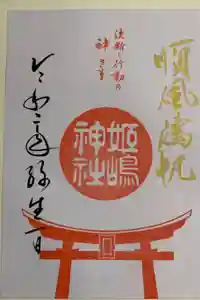 順風満帆
決断と行動の
神さま
姫嶋
神社
令和六年弥生一日